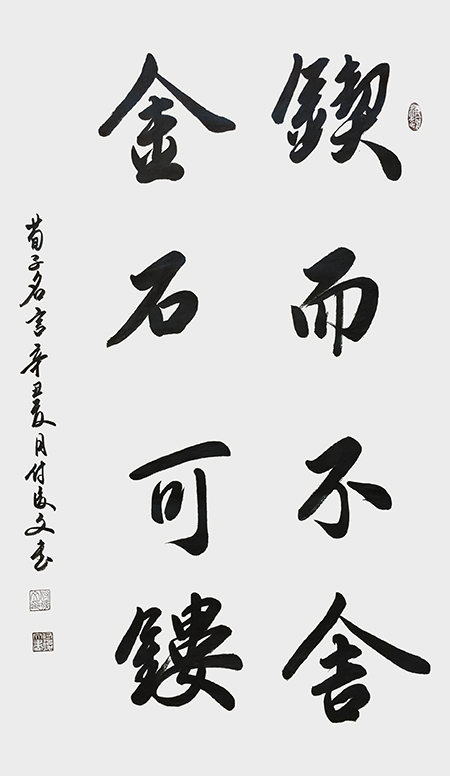 鍥而不舍
金石可鏤
荀子名言辛丑夏月付海文书